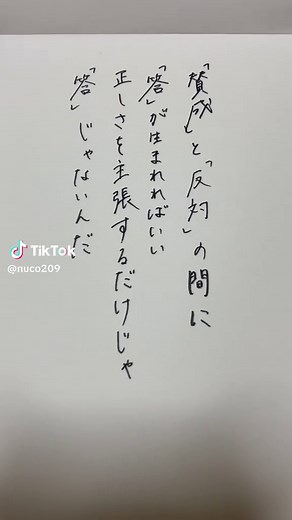 「賛成」と「反対」の間に
「答」が生まれればいい
正しさを主張するだけじゃ
「答」じゃないんだ
TikTok
@nuco209